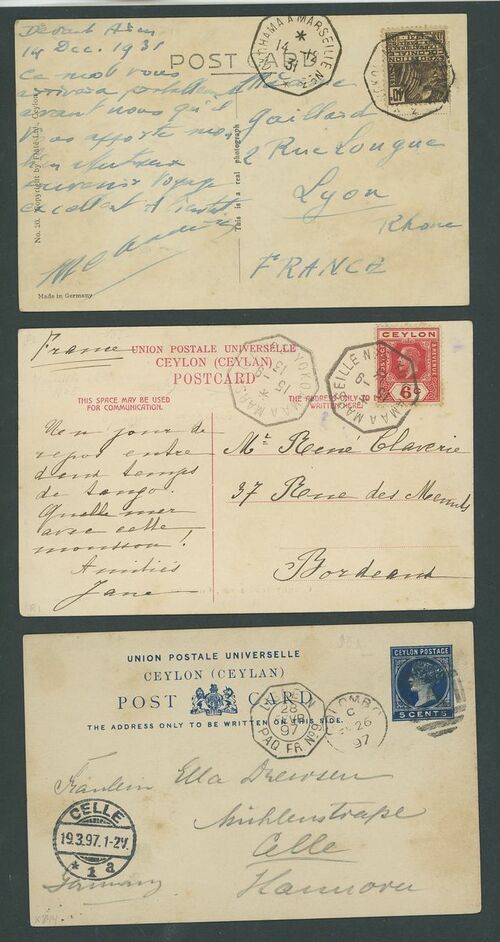 Devant Aden
14 Dec. 1931
Ce mot vous
arrivera
avant nous qu'il
vous apporte
souvenir voyage
excellent
POST CARD
No. 20. Copyright by Platé Ltd., Ceylon.
This is a real photograph
Made in Germany
YOKOHAMA A MARSEILLE No
14 12 31
Gaillard
2 Rue Longue
Lyon
Rhone
FRANCE
France
UNION POSTALE UNIVERSELLE
CEYLON (CEYLAN)
POSTCARD
THIS SPACE MAY BE USED
FOR COMMUNICATION.
THE ADDRESS ONLY TO BE
WRITTEN HERE.
CEYLON
POSTAGE
6c
Un jour de
repos entre
deux temps
de tango.
Quelle mer
avec cette
mousson!
Amitiés
Jane
Mr René Claverie
37 Rue des Menuts
Bordeaux
UNION POSTALE UNIVERSELLE
CEYLON (CEYLAN)
POST CARD
THE ADDRESS ONLY TO BE WRITTEN ON THIS SIDE.
CEYLON POSTAGE
5 CENTS
28
97
PAQ. FR. No
COLOMBO
C
26
97
Fräulein Ella Drewsen
Mühlenstraße
Celle
Hannover
Germany
CELLE
19.3.97.1-2V.
* 1 a